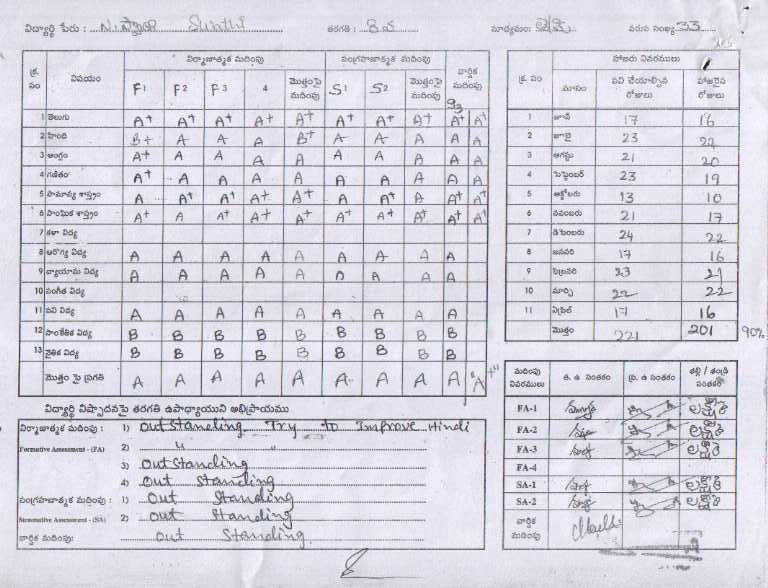 విద్యార్థి పేరు : తరగతి : 8 మాధ్యమం: వరుస సంఖ్య 33
క్ర. సం విషయం నిర్మాణాత్మక మదింపు సంగ్రహణాత్మక మదింపు వార్షిక మదింపు
F1 F2 F3 4 మొత్తంపై మదింపు S1 S2 మొత్తంపై మదింపు S3
1 తెలుగు A+ A+ A+ A+ A+ A+ A+ A+ A+ A+
2 హింది B+ A A A B+ A A A A A
3 ఆంగ్లం A+ A A A A A A A A A
4 గణితం A+ A A A A A A A A A
5 సామాన్య శాస్త్రం A A+ A+ A+ A+ A A+ A A+ A+
6 సాంఘిక శాస్త్రం A+ A A+ A+ A+ A+ A+ A+ A+ A+
7 కళా విద్య
8 ఆరోగ్య విద్య A A A A A A A A A
9 వ్యాయామ విద్య A A A A A A A A A
10 సంగీత విద్య
11 పని విద్య A A A A A A A A A
12 సాంకేతిక విద్య B B B B B B B B B
13 నైతిక విద్య B B B B B B B B B
మొత్తం పై ప్రగతి A A A A A A A A A A
హాజరు వివరములు
క్ర. సం మాసం పని చేయాల్సిన రోజులు హాజరైన రోజులు
1 జూన్ 17 16
2 జులై 23 22
3 ఆగష్టు 21 20
4 సెప్టెంబర్ 23 19
5 అక్టోబరు 13 10
6 నవంబరు 21 17
7 డిసెంబరు 24 22
8 జనవరి 17 16
9 ఫిబ్రవరి 23 21
10 మార్చి 22 22
11 ఏప్రిల్ 17 16
మొత్తం 221 201 90%
విద్యార్థి నిష్పాదనపై తరగతి ఉపాధ్యాయుని అభిప్రాయము
నిర్మాణాత్మక మదింపు : 1) outstanding Try to Improve Hindi
Formative Assessment - (FA) 2) " "
3) outstanding
4) out standing
సంగ్రహణాత్మక మదింపు: 1) out standing
Summative Assessment - (SA) 2) out standing
వార్షిక మదింపు: out standing
మదింపు వివరములు త. ఉ సంతకం ప్ర. ఉ సంతకం తల్లి / తండ్రి సంతకం
FA-1
FA-2
FA-3
FA-4
SA-1
SA-2
వార్షిక మదింపు